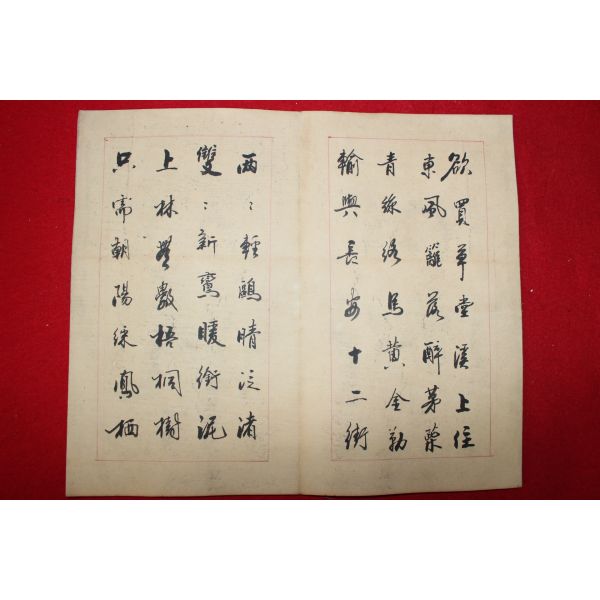 欲買草堂溪上住
東風籬落醉茅柴
青絲絡馬黃金勒
輸與長安十二街
兩〻輕鷗晴泛渚
雙〻新鷰暖銜泥
上林無數梧桐樹
只需朝陽綵鳳栖